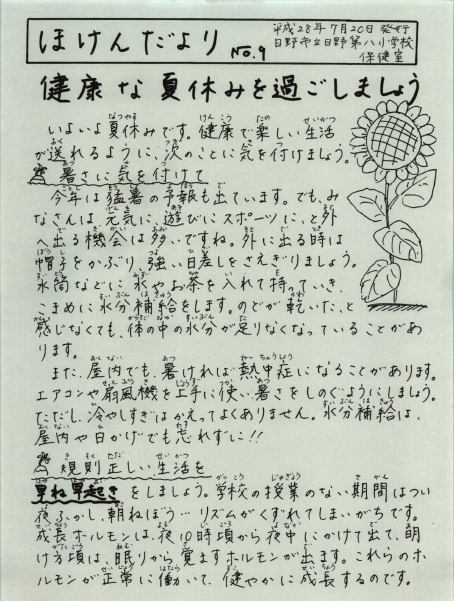 ほけんだより NO.9
平成28年7月20日 発行
日野市立日野第八小学校
保健室
健康な夏休みを過ごしましょう
いよいよ夏休みです。健康で楽しい生活
が送れるように、次のことに気を付けましょう。
暑さに気を付けて
今年は猛暑の予報も出ています。でも、み
なさんは元気に、遊びにスポーツに、と外
へ出る機会は多いですね。外に出る時は
帽子をかぶり、強い日差しをさえぎりましょう。
水筒などに水やお茶を入れて持っていき、
こまめに水分補給をします。のどが乾いた、と
感じなくても、体の中の水分が足りなくなっていることがあ
ります。
また、屋内でも、暑ければ熱中症になることがあります。
エアコンや扇風機を上手に使い、暑さをしのぐようにしましょう。
ただし、冷やしすぎはかえってよくありません。水分補給は、
屋内や日かげでも忘れずに!!
規則正しい生活を
早ね早起きをしましょう。学校の授業のない期間はつい
夜ふかし、朝ねぼう…リズムがくずれてしまいがちです。
成長ホルモンは、夜10時頃から夜中にかけて出て、明
け方頃は、眠りから覚ますホルモンが出ます。これらのホ
ルモンが正常に働いて、健やかに成長するのです。